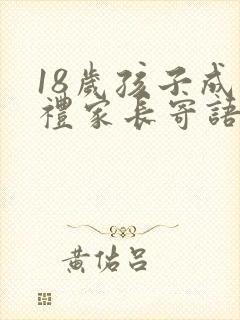 18歲孩子成
禮家長寄語
黄佑吕